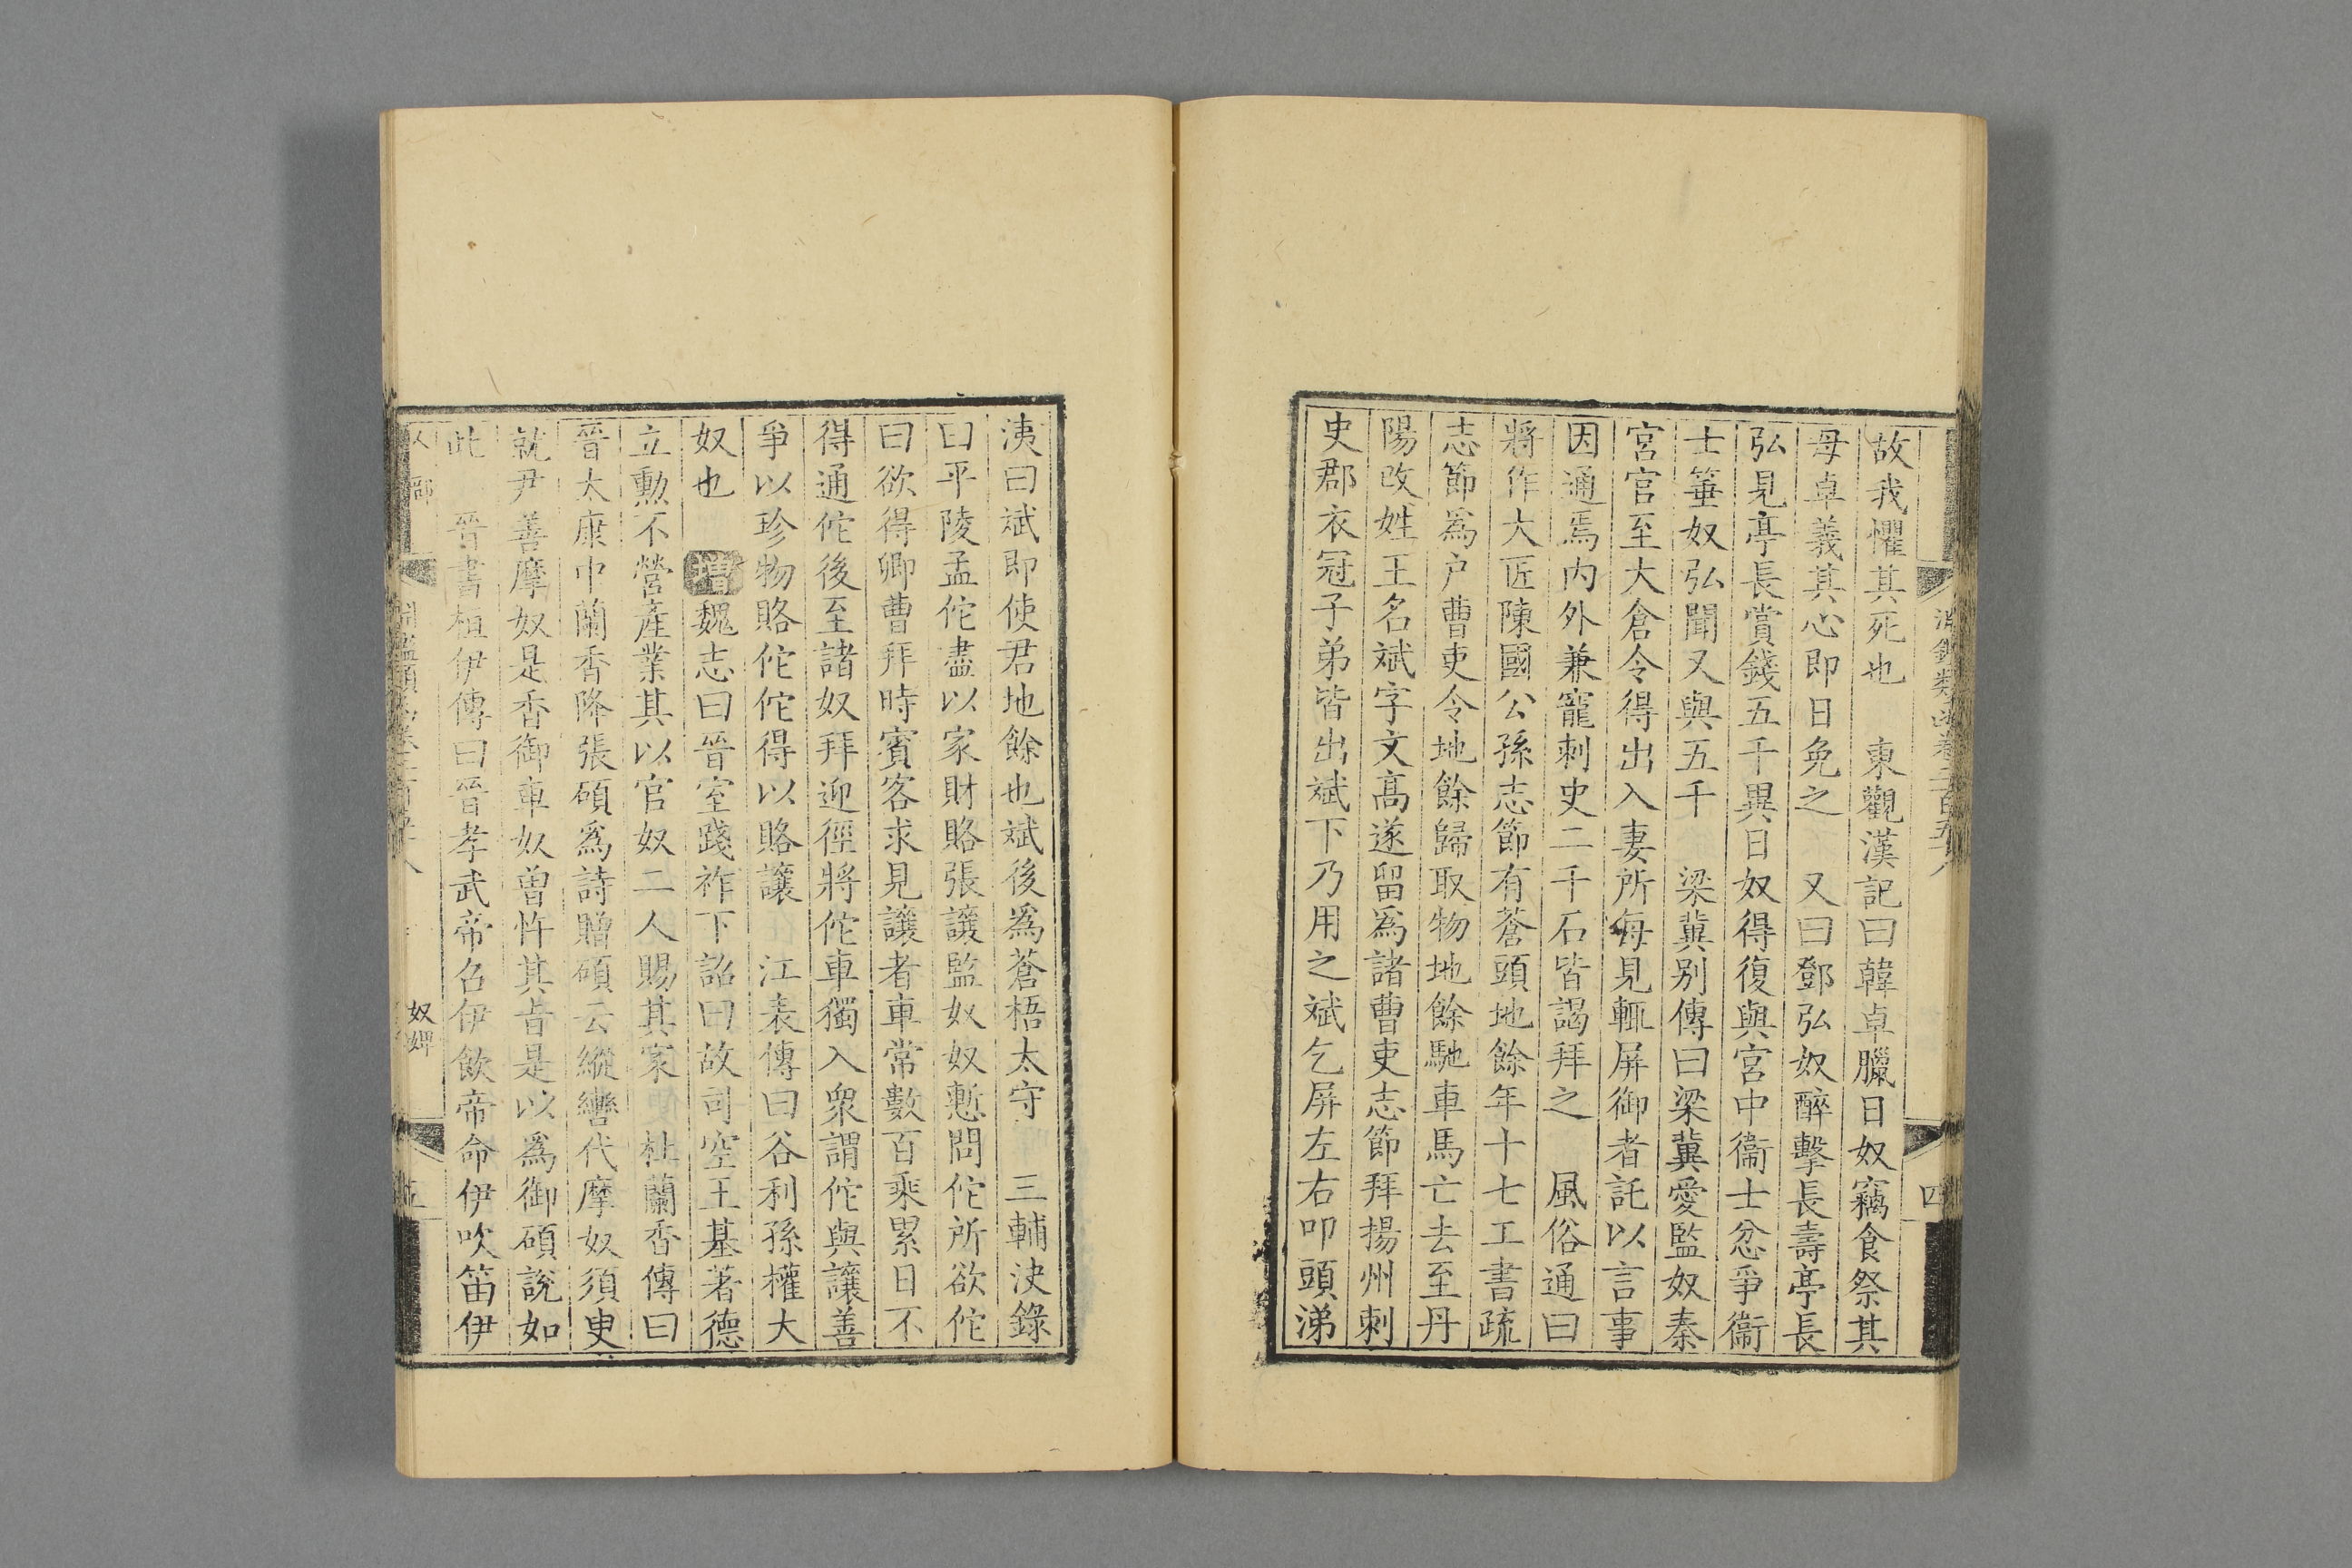 淵鑑類函卷二百五十八
四
故我懼其死也　東觀漢記曰韓卓臘日奴竊食祭其
母卓義其心即日免之　又曰鄧弘奴醉擊長壽亭長
弘見亭長賞錢五千異日奴得復與宮中衞士忿爭衞
士箠奴弘聞又與五千　梁冀别傳曰梁冀愛監奴秦
宮官至大倉令得出入妻所每見輒屏御者託以言事
因通焉内外兼寵刺史二千石皆謁拜之　風俗通曰
將作大匠陳國公孫志節有蒼頭地餘年十七工書疏
志節爲户曹吏令地餘歸取物地餘馳車馬亡去至丹
陽改姓王名斌字文髙遂留爲諸曹吏志節拜揚州刺
史郡衣冠子弟皆出斌下乃用之斌乞屏左右叩頭涕
洟曰斌即使君地餘也斌後爲蒼梧太守　三輔決錄
曰平陵孟佗盡以家財賂張讓監奴奴慙問佗所欲佗
曰欲得卿曹拜時賓客求見讓者車常數百乘累日不
得通佗後至諸奴拜迎徑將佗車獨入衆謂佗與讓善
爭以珍物賂佗佗得以賂讓　江表傳曰谷利孫權大
奴也　增魏志曰晉室踐祚下詔曰故司空王基著德
立勳不營產業其以官奴二人賜其家　杜蘭香傳曰
晉大康中蘭香降張碩爲詩贈碩云縱轡代摩奴須臾
就尹善摩奴是香御車奴曾忤其旨是以爲御碩說如
此　晉書桓伊傳曰晉孝武帝召伊飲帝命伊吹笛伊
人部
淵鑑類函卷二百五十八
奴婢
五